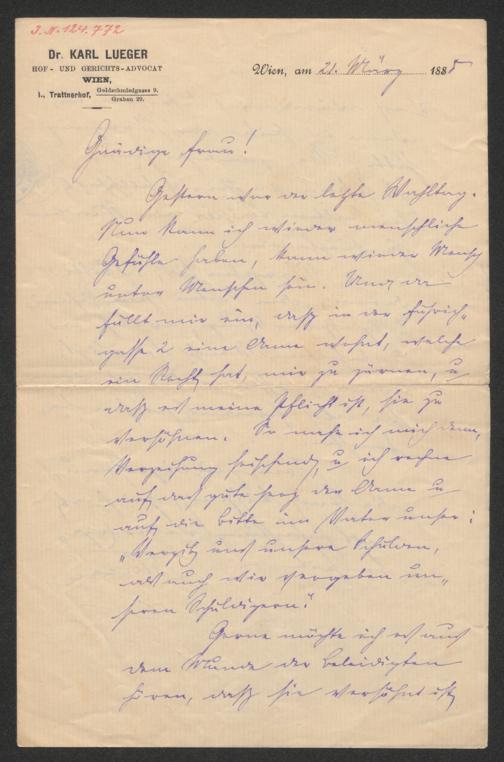 I.N. 124.772
Dr. KARL LUEGER
HOF- UND GERICHTS-ADVOCAT
WIEN,
I., Trattnerhof, Goldschmiedgasse 9.
Graben 29.
Wien, am 21. März 1888
Gnädige Frau!
Gestern war der letzte Wahltag.
Nun kann ich wieder menschliche
Gefühle haben, kann wieder Mensch
unter Menschen sein. Und da
fällt mir ein, daß in der Führich-
gasse 2 eine Dame wohnt, welche
ein Recht hat, mir zu zürnen, u
daß es meine Pflicht ist, sie zu
versöhnen. So nahe ich mich denn,
Verzeihung heischend, u ich rechne
auf das gute Herz der Dame u
auf die Bitte im Vater unser:
„Vergib uns unsere Schulden,
als auch wir vergeben un-
seren Schuldigern."
Gerne möchte ich es aus
dem Munde der Beleidigten
hören, daß sie versöhnt ist